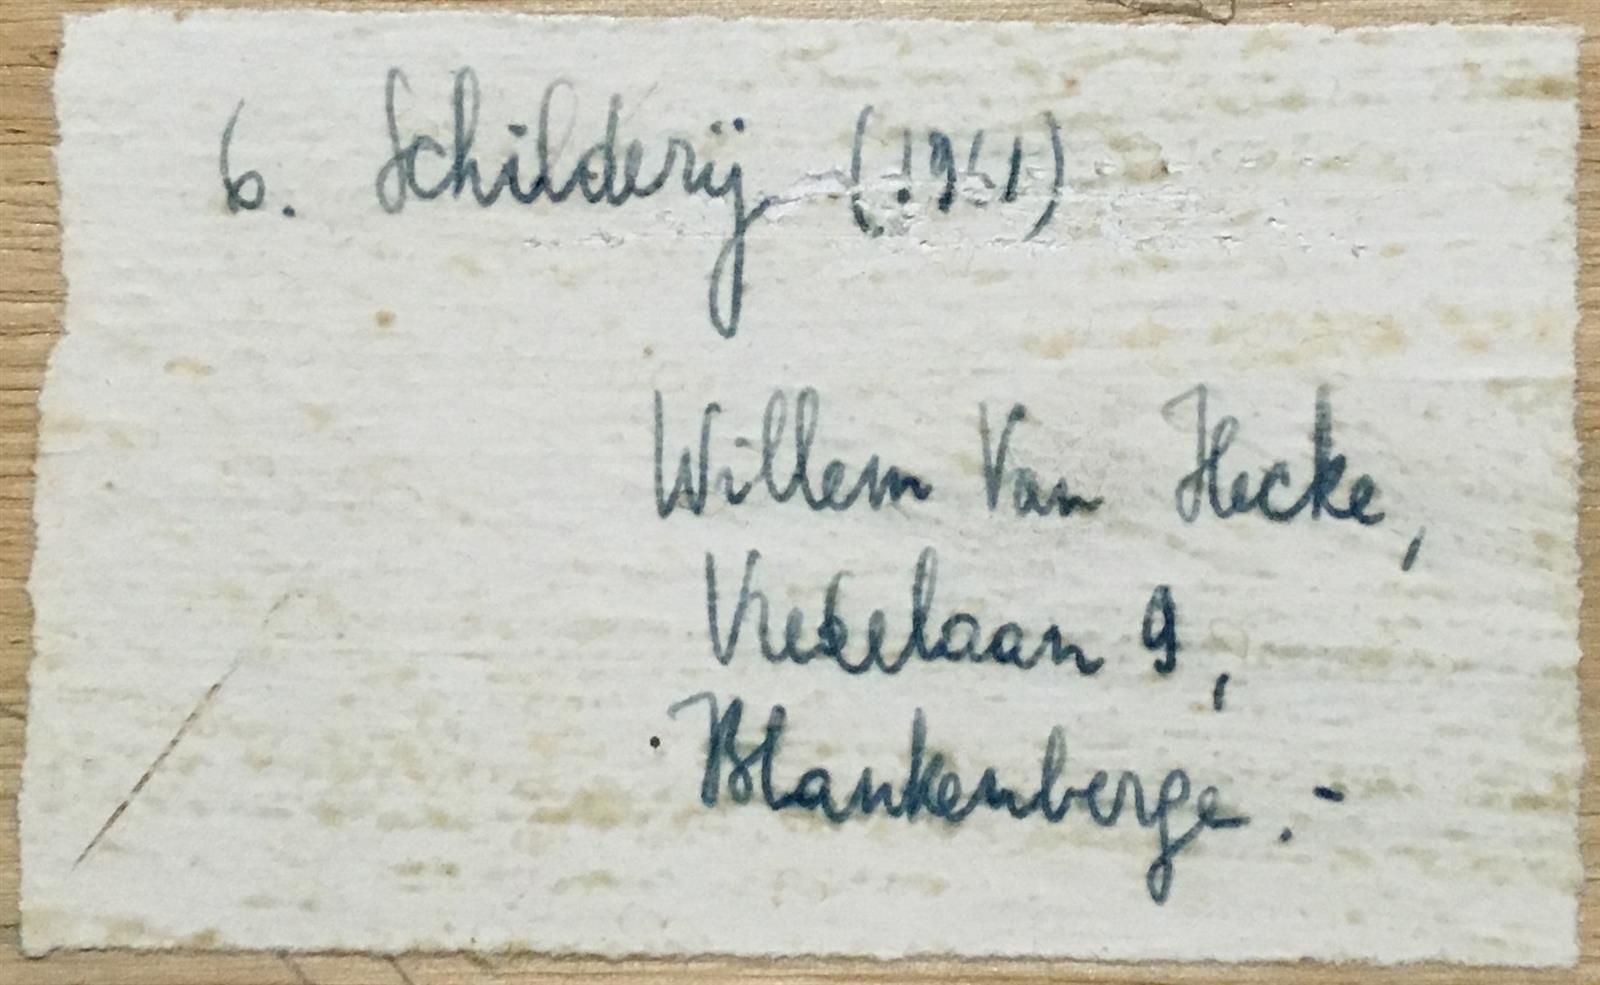 6. Schilderij (1961)
Willem Van Hecke,
Vredelaan 9,
Blankenberge.-